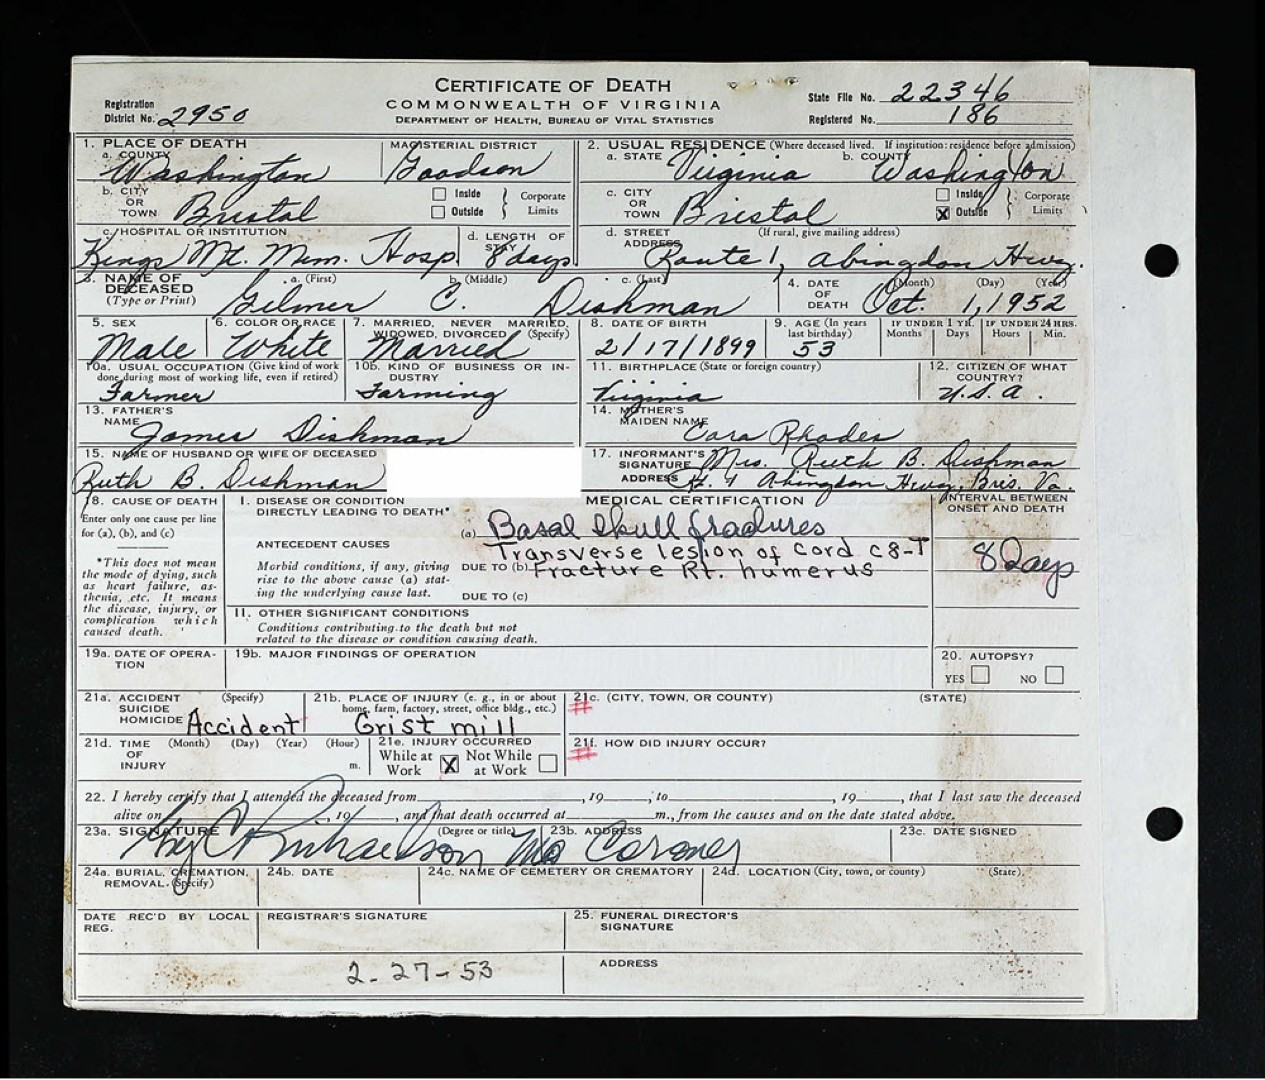 CERTIFICATE OF DEATH
COMMONWEALTH OF VIRGINIA
DEPARTMENT OF HEALTH, BUREAU OF VITAL STATISTICS
Registration District No. 2950
State File No. 22346
Registered No. 186
1. PLACE OF DEATH
a. COUNTY Washington
MAGISTERIAL DISTRICT Goodson
b. CITY OR TOWN Bristol
Inside Outside } Corporate Limits
c. HOSPITAL OR INSTITUTION Kings Mt. Mem. Hosp
d. LENGTH OF STAY 8 days
2. USUAL RESIDENCE (Where deceased lived. If institution: residence before admission)
a. STATE Virginia b. COUNTY Washington
c. CITY OR TOWN Bristol
Inside X Outside } Corporate Limits
d. STREET ADDRESS (If rural, give mailing address) Route 1, Abingdon Hwy.
3. NAME OF DECEASED (Type or Print)
a. (First) Gilmer b. (Middle) C. c. (Last) Dishman
4. DATE OF DEATH (Month) (Day) (Year) Oct. 1, 1952
5. SEX Male
6. COLOR OR RACE White
7. MARRIED, NEVER MARRIED, WIDOWED, DIVORCED (Specify) Married
8. DATE OF BIRTH 2/17/1899
9. AGE (In years last birthday) 53
IF UNDER 1 YR. Months Days
IF UNDER 24 HRS. Hours Min.
10a. USUAL OCCUPATION (Give kind of work done during most of working life, even if retired) Farmer
10b. KIND OF BUSINESS OR INDUSTRY Farming
11. BIRTHPLACE (State or foreign country) Virginia
12. CITIZEN OF WHAT COUNTRY? U.S.A.
13. FATHER'S NAME James Dishman
14. MOTHER'S MAIDEN NAME Cora Rhodes
15. NAME OF HUSBAND OR WIFE OF DECEASED Ruth B. Dishman
17. INFORMANT'S SIGNATURE Mrs. Ruth B. Dishman
ADDRESS Rt. Abingdon Hwy. Bris. Va.
18. CAUSE OF DEATH
Enter only one cause per line for (a), (b), and (c)
*This does not mean the mode of dying, such as heart failure, asthenia, etc. It means the disease, injury, or complication which caused death.
MEDICAL CERTIFICATION
INTERVAL BETWEEN ONSET AND DEATH
I. DISEASE OR CONDITION DIRECTLY LEADING TO DEATH*
(a) Basal skull fractures
Transverse lesion of cord C8-T
ANTECEDENT CAUSES
Morbid conditions, if any, giving rise to the above cause (a) stating the underlying cause last.
DUE TO (b) Fracture Rt. humerus
8 Days
DUE TO (c)
II. OTHER SIGNIFICANT CONDITIONS
Conditions contributing to the death but not related to the disease or condition causing death.
19a. DATE OF OPERATION
19b. MAJOR FINDINGS OF OPERATION
20. AUTOPSY?
YES NO
21a. ACCIDENT SUICIDE HOMICIDE (Specify) Accident
21b. PLACE OF INJURY (e. g., in or about home, farm, factory, street, office bldg., etc.) Grist mill
21c. (CITY, TOWN, OR COUNTY) (STATE)
21d. TIME OF INJURY (Month) (Day) (Year) (Hour) m.
21e. INJURY OCCURRED
While at Work X Not While at Work
21f. HOW DID INJURY OCCUR?
22. I hereby certify that I attended the deceased from , 19 , to , 19 , that I last saw the deceased
alive on , 19 , and that death occurred at m., from the causes and on the date stated above.
23a. SIGNATURE (Degree or title) Richardson MD
23b. ADDRESS Coroner
23c. DATE SIGNED
24a. BURIAL, CREMATION, REMOVAL. (Specify)
24b. DATE
24c. NAME OF CEMETERY OR CREMATORY
24d. LOCATION (City, town, or county) (State).
DATE REC'D BY LOCAL REG.
REGISTRAR'S SIGNATURE
25. FUNERAL DIRECTOR'S SIGNATURE
2-27-53
ADDRESS